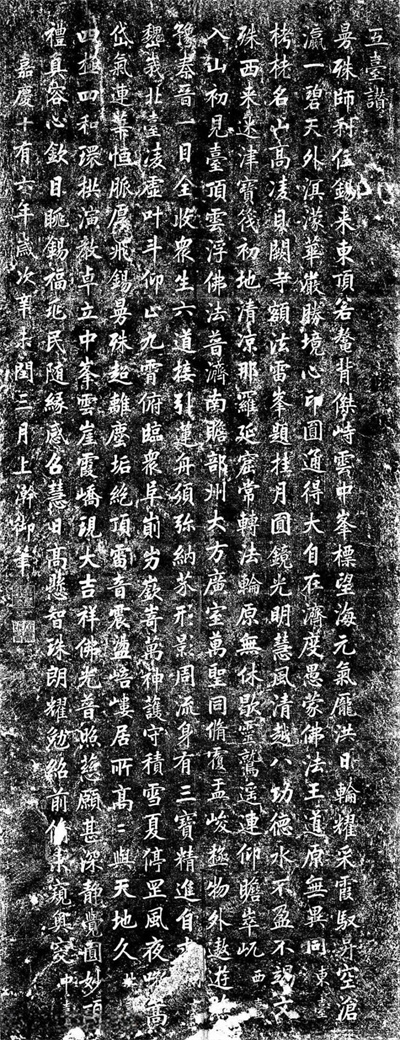 五臺讚
曼殊師利住錫来東頂若鰲背傑峙雲中峯標望海元氣龐洪日輪耀采霞馭昇空滄
瀛一碧天外溟濛華嚴勝境心印圓通得大自在濟度愚蒙佛法王道原無異同東臺
栲栳名山高凌貝闕寺額法雷峯題挂月圓鏡光明慧風清越八功德水不盈不竭文
殊西来迷津寶筏初地清凉那羅延窟常轉法輪原無休歇靈鷲遥連仰瞻崒屼西
入山初見臺頂雲浮佛法普濟南瞻部州大方廣室萬聖同脩覆盂峻極物外遨遊
豫秦晉一目全收衆生六道接引蓮舟須弥納芥形影周流身有三寶精進自求
巍峩北臺凌虚叶斗仰止九霄俯臨衆阜崱屴嶔嵜萬神護守積雪夏停罡風夜吼嵩
岱氣連華恒脈厚飛錫曼殊超離塵垢絶頂雷音震盪培嶁居所高二與天地久
四埵四和環拱演教卓立中峯雲崖霞嶠現大吉祥佛光普照慈願甚深静覺圓妙頂
禮真容心欽目眺錫福烝民随緣感召慧日高懸智珠朗耀勉紹前修来窺奥窔中
嘉慶十有六年歲次辛未閏三月上澣御筆